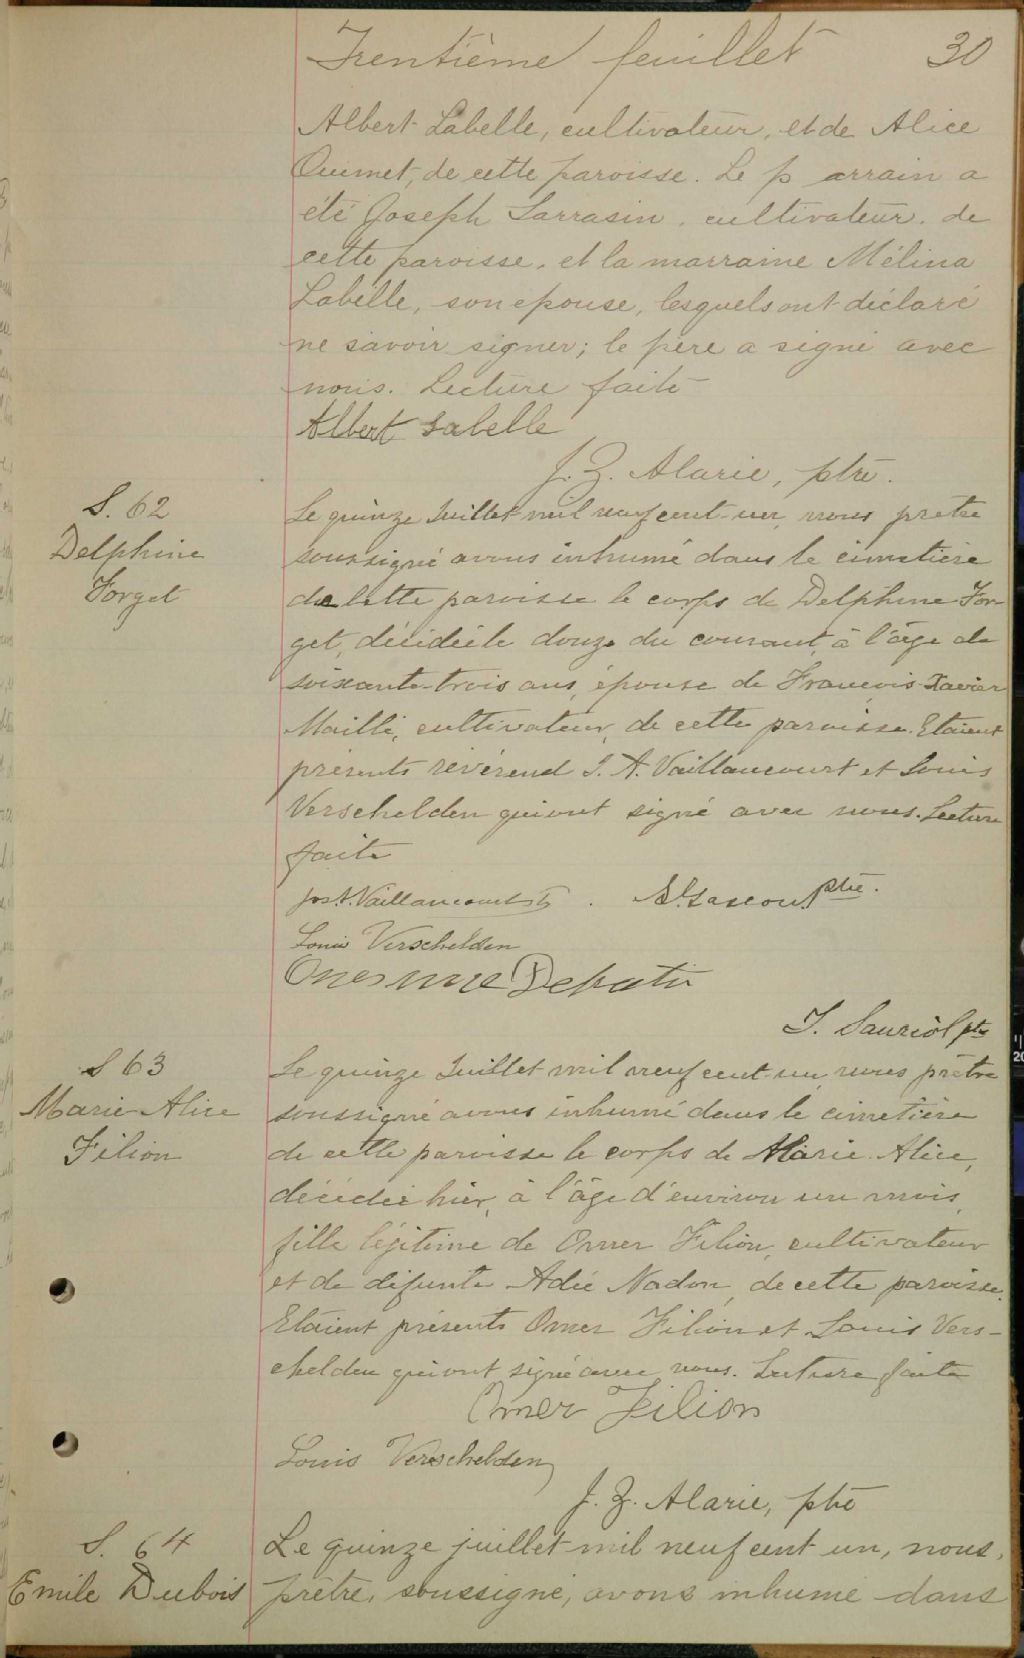 Trentième feuillet 30
Albert Labelle, cultivateur, et de Alice
Ouimet, de cette paroisse. Le parrain a
été Joseph Sarrasin, cultivateur, de
cette paroisse, et la marraine Mélina
Labelle, son epouse, lesquels ont déclaré
ne savoir signer; le père a signé avec
nous. Lecture faite
Albert Labelle
J. Z. Alarie, ptre.
S. 62
Delphine
Forget
Le quinze Juillet mil neuf cent-un, nous prêtre
soussigné avons inhumé dans le cimetière
de cette paroisse le corps de Delphine For-
get, décédée le douze du courant, à l'âge de
soixante-trois ans, épouse de François-Xavier
Maillé, cultivateur, de cette paroisse. Etaient
présents révérend J. A. Vaillancourt et Louis
Verschelden qui ont signé avec nous. Lecture
faite
Jos. A. Vaillancourt
ptre.
Louis Verschelden
Onesime
J. Sauriol ptre
S 63
Marie-Alice
Filion
Le quinze Juillet mil neuf cent-un, nous prêtre
soussigné avons inhumé dans le cimetière
de cette paroisse le corps de Marie-Alice,
décédée hier, à l'âge d'environ un mois,
fille légitime de Omer Filion, cultivateur
et de défunte Adée Nadon, de cette paroisse.
Etaient présents Omer Filion et Louis Vers-
chelden qui ont signé avec nous. Lecture faite
Omer Filion
Louis Verschelden
J. Z. Alarie, ptre
S. 64
Emile Dubois
Le quinze juillet mil neuf cent un, nous,
prêtre, soussigné, avons inhumé dans